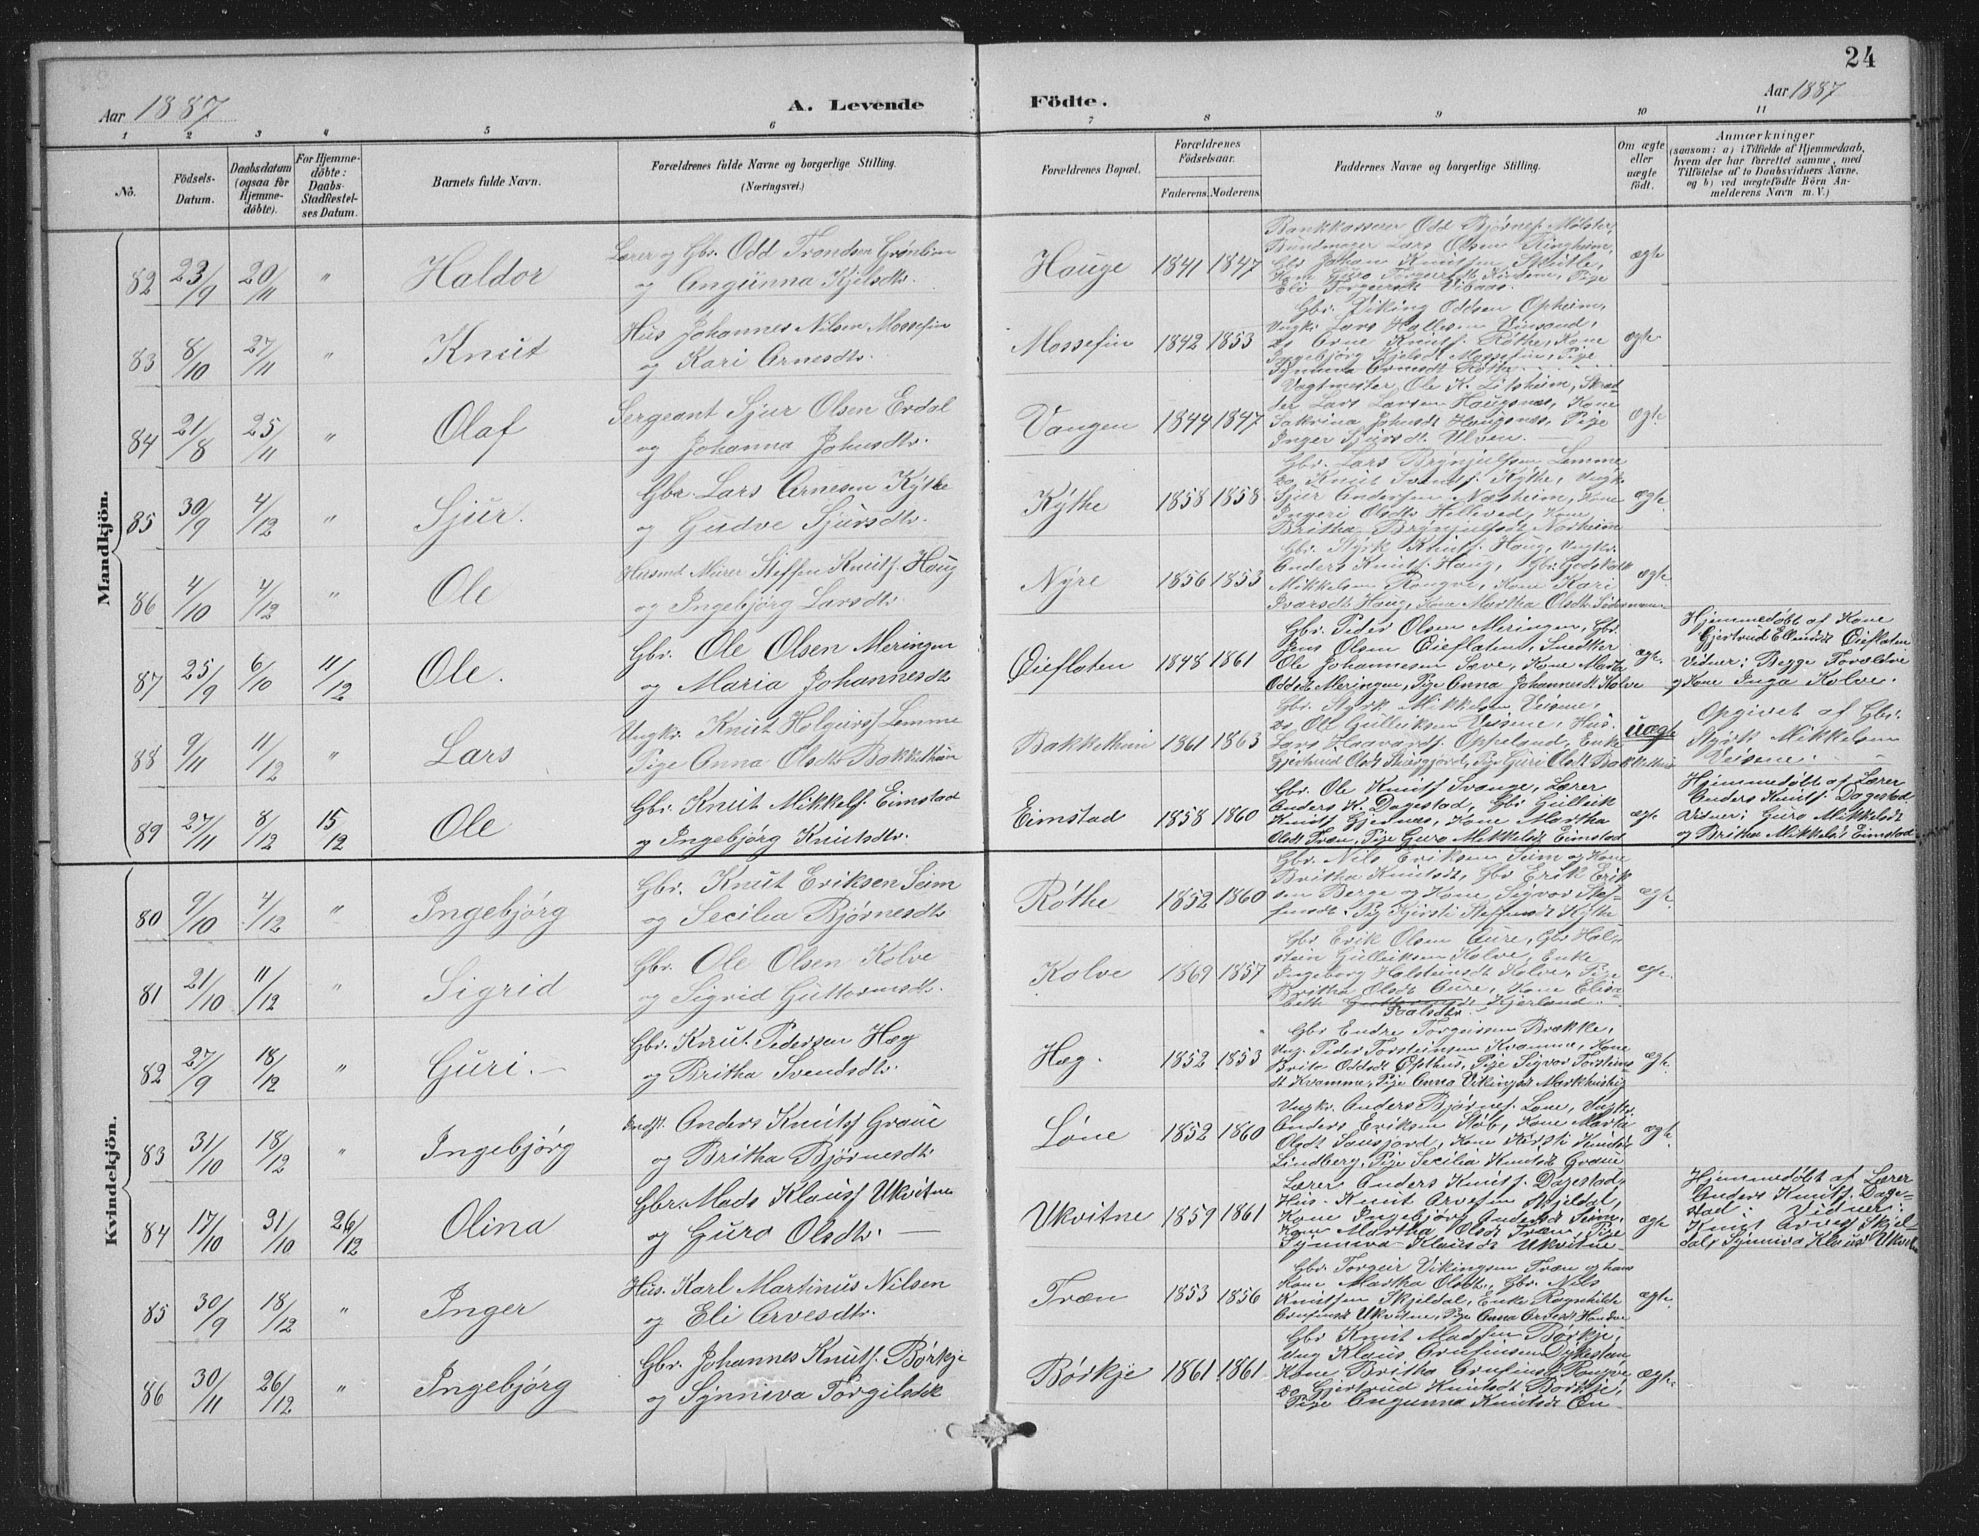 24
Aar 1887
A. Levende
Födte.
Aar 1887
1 2 3 4 5 6 7 8 9 10 11
No.
Födsels-Datum.
Daabsdatum (ogsaa for Hjemmedöbte).
For Hjemmedöbte: Daabs-Stadfæstelses Datum.
Barnets fulde Navn.
Forældrenes fulde Navne og borgerlige Stilling.
(Næringsvei.)
Forældrenes Bopæl.
Forældrenes Födselsaar.
Faderens. Moderens.
Faddernes Navne og borgerlige Stilling.
Om ægte eller uægte födt.
Anmærkninger
(saasom: a) i Tilfælde af Hjemmedaab,
hvem der har forrettet samme, med
Tilföielse af to Daabsvidners Navne,
og b) ved uægtefödte Börn Anmelderens Navn m. V.)
Mandkjön.
82 23/9 20/11 " Haldor
Lærer og Gbr. Odd Trondsen Grønlien
og Angunna Kjelsdtr.
Hauge 1841 1847
Bankkasserer Odd Bjørnes. Mølster,
Bundmager Lars Olsen Ringheim,
Gbr. Johan Knutsen Skutle,
ægte
83 8/10 27/11 " Knut
Hus Johannes Nilsen Mossefin
og Kari Arnesdtr.
Mossefin 1842 1853
Gbr. Viking Oddsen Opheim,
Do Arne Knuts. Röthe, Kone
Ingebjörg Kjelsdt. Mossefin, Pige
Synneva Arnesdt. Röthe
ægte.
84 21/8 25/11 " Olaf
Sergeant Sjur Olsen Erdal
og Johanna Johnsdtr.
Vangen 1844 1847
Vagtmester Ole K. Litsheim, Skræd-
der Lars Larsen Haugsnæs, Kone
Sakrina Johnsdt. Haugsnæs, Pige
Inger Sjursdt. Ulven.
ægte.
85 30/9 4/12 " Sjur.
Gbr. Lars Arnesen Kÿthe
og Gudve Sjursdtr.
Kÿthe 1858 1858
Gbr. Lars Brynjulfsen Lemme,
Do Knut Svends. Kÿthe, Ungk.
Sjur Andersen Næsheim, Kone
Ingeri Olsdtr. Helleved, Kone
Britha Brynjulfsdt. Norheim
ægte.
86 4/10 4/12 " Ole
Husmd. Murer Steffen Knuts. Haug
og Ingebjörg Larsdtr.
Nÿre 1856 1853
Gbr. Styrk Knuts. Haug, Ungkr.
Anders Knuts. Haug, Gbr. Godskalk
Mikkelsen Rongve, Kone Kari
Ivarsdt. Haug, Kone Martha Olsdt.
ægte
87 25/9 6/10 11/12 Ole.
Gbr. Ole Olsen Meringen
og Maria Johannesdtr.
Øieflaten 1848 1861
Gbr. Peder Olsen Meringen, Gbr.
Jens Olsen Øieflaten, Smedker
Ole Johannesen Sæve, Kone Marta
Oddsdt. Meringen, Pige Anna Johannesdt. Kolve
ægte.
Hjemmedøbt af Kone
Gjertrud Ellingsdt. Øieflaten
Vidner: Begge Forældre
og Kone Inga Kolve.
88 9/11 11/12 " Lars
Ungkr. Knut Holgeirs. Lemme
Pige Anna Olsdtr. Bakkethun
Bakkethun 1861 1863
Gbr. Styrk Mikkelsen Veisene,
Do Ole Gulleiksen Veisene, Hus.
Lars Haavards. Oppeland, Enke
Gjertrud Olsdt. Skiergjord, Pige Guri Olsdt. Bakkethun
uægte
Opgivet af Gbr.
Styrk Mikkelsen
Veisene.
89 27/11 8/12 15/12 Ole
Gbr. Knut Mikkels. Eimstad
og Ingebjörg Knutsdtr.
Eimstad 1858 1860
Gbr. Ole Knuts. Svange, Lærer
Anders K. Dagestad, Gbr. Gulleik
Knuts. Gjernæs, Kone Martha
Olsdt. Træn, Pige Guro Mikkelsdt. Eimstad
ægte
Hjemmedøbt af Lærer
Anders Knuts. Dagestad.
Vidner: Guro Mikkelsdt.
og Britha Mikkelsdt. Eimstad
Kvindekjön.
80 9/10 4/12 " Ingebjörg
Gbr. Knut Eriksen Seim
og Secilia Bjørnesdtr.
Röthe 1852 1860
Gbr. Nils Eriksen Seim og Kone
Britha Knutsdt., Gbr. Erik Erik-
sen Berge og Kone Sigvor Stef-
fensdt. Pig Kjersti Steffensdt. Kÿthe
ægte.
81 21/10 11/12 " Sigrid
Gbr. Ole Olsen Kolve
og Sigrid Guttormsdtr.
Kolve 1869 1857
Gbr. Erik Olsen Aure, Gbr. Hol-
stein Gulleiksen Kolve, Enke
Ingeborg Holsteinsdt. Kolve, Pige
Britha Olsdt. Aure, Kone Elisa-
beth Kjerland.
ægte.
82 27/9 18/12 " Guri.
Gbr. Knut Pedersen Hæg
og Britha Svendsdtr.
Hæg. 1852 1853
Gbr. Endre Torgeirsen Brække,
Ung. Peder Torsteinsen Kvamme, Kone
Brita Oddsdt. Opthus, Pige Sigvor Torsteins-
dt. Kvamme, Pige Anna Vikingsdt. Markhusteig
ægte.
83 31/10 18/12 " Ingebjörg
Anders Knuts. Graue
og Britha Bjørnesdtr.
Løne 1852 1860
Ungkr. Anders Bjørnes. Løne, Ungkr.
Anders Eriksen Støb, Kone Marta
Olsdt. Sausjord, Kone Kirsti Knutsdt.
Lindberg, Pige Secilia Knutsdt. Graue
ægte.
84 17/10 31/10 26/12 Olina
Gbr. Mads Klaus. Ukvitne
og Guro Olsdtr.
Ukvitne 1859 1861
Lærer Anders Knuts. Dagestad,
Hus. Knut Arvesen Skjeldal,
Kone Ingebjörg Andersdt. Seim,
Kone Martha Olsdt. Træn, Pige
Synneva Klausdt. Ukvitne
ægte
Hjemmedøbt af Lærer
Anders Knuts. Dage-
stad. Vidner:
Knut Arves. Skjel-
dal, Synneva Klausdt. Ukvitne
85 30/9 18/12 " Inger
Hus. Karl Martinus Nilsen
og Eli Arvesdtr.
Træn 1853 1856
Gbr. Torgeir Vikingsen Træn og hans
Kone Martha Olsdtr., Gbr. Nils
Knutsen Skjeldal, Enke Ragnhilde
Arnfinsdt. Ukvitne, Pige Anna Arvesdt.
ægte.
86 30/11 26/12 " Ingebjörg
Gbr. Johannes Knuts. Börkje
og Synneva Torgilsdtr.
Börkje 1861 1861
Gbr. Knut Madssen Börkje,
Ung Klaus Arnfinsen Dykestan
Kone Britha Arnfinsdt. Rongve,
Do Gjertrud Knutsdt. Börkje,
Pige Angunna Knutsdt.
ægte.